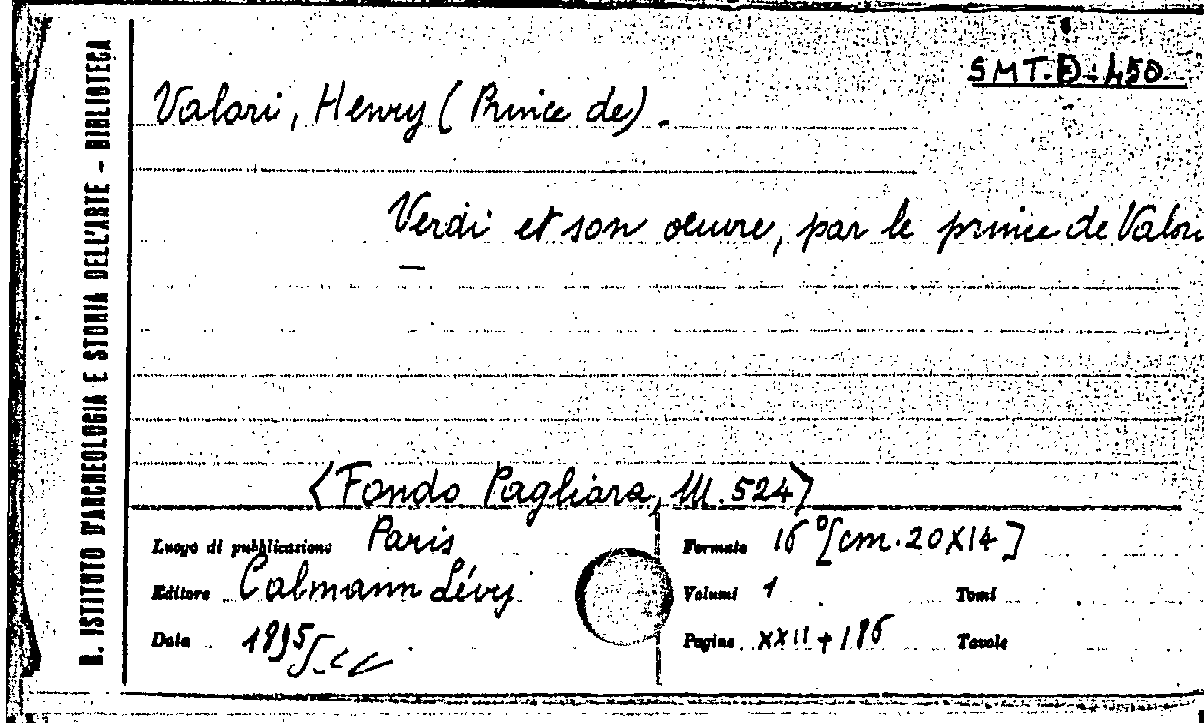 R. ISTITUTO D'ARCHEOLOGIA E STORIA DELL'ARTE - BIBLIOTECA
SMT.D.450
Valori, Henry (Prince de).
Verdi et son oeuvre, par le prince de Valori
<Fondo Pagliara, M.524>
Luogo di pubblicazione Paris
Editore Calmann Lévy
Data 1895
Formato 16° [cm. 20X14]
Volumi 1 Tomi
Pagine XXII + 186 Tavole